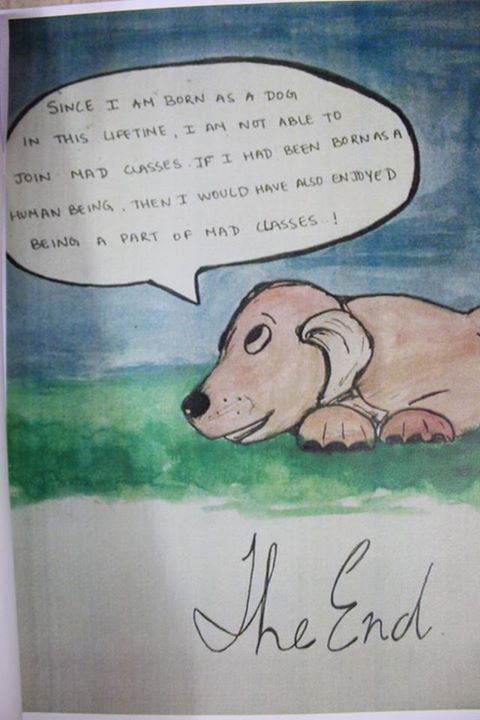 SINCE I AM BORN AS A DOG
IN THIS LIFETINE, I AM NOT ABLE TO
JOIN MAD CLASSES. IF I HAD BEEN BORN AS A
HUMAN BEING, THEN I WOULD HAVE ALSO ENJOYED
BEING A PART OF MAD CLASSES..!
The End